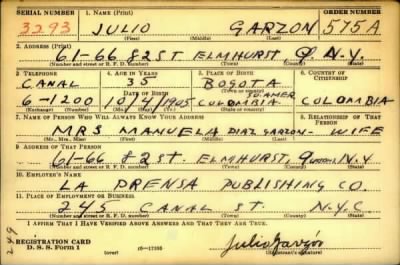 SERIAL NUMBER 1. NAME (Print) ORDER NUMBER
3293 JULIO GARZON 575A
(First) (Middle) (Last)
2. ADDRESS (Print)
61-66 82 ST. ELMHURST, Q. N.Y.
(Number and street or R. F. D. number) (Town) (County) (State)
3. TELEPHONE 4. AGE IN YEARS 5. PLACE OF BIRTH 6. COUNTRY OF CITIZENSHIP
CANAL 35 BOGOTA
DATE OF BIRTH SO. AMER
6-1200 10/4/1905 COLOMBIA COLOMBIA
(Mo.) (Day) (Yr.)
7. NAME OF PERSON WHO WILL ALWAYS KNOW YOUR ADDRESS 8. RELATIONSHIP OF THAT PERSON
MRS MANUELA DIAZ GARZON - WIFE
(Mr., Mrs., Miss) (First) (Middle) (Last)
9. ADDRESS OF THAT PERSON
61-66 82 ST. ELMHURST, N.Y.
(Number and street or R. F. D. number) (Town) (County) (State)
10. EMPLOYER'S NAME
LA PRENSA PUBLISHING CO.
11. PLACE OF EMPLOYMENT OR BUSINESS
245 CANAL ST. N.Y.C.
(Number and street or R. F. D. number) (Town) (County) (State)
I AFFIRM THAT I HAVE VERIFIED ABOVE ANSWERS AND THAT THEY ARE TRUE.
249
REGISTRATION CARD
D. S. S. Form 1 (over) 16-17105 Julio Garzón
(Registrant's signature)